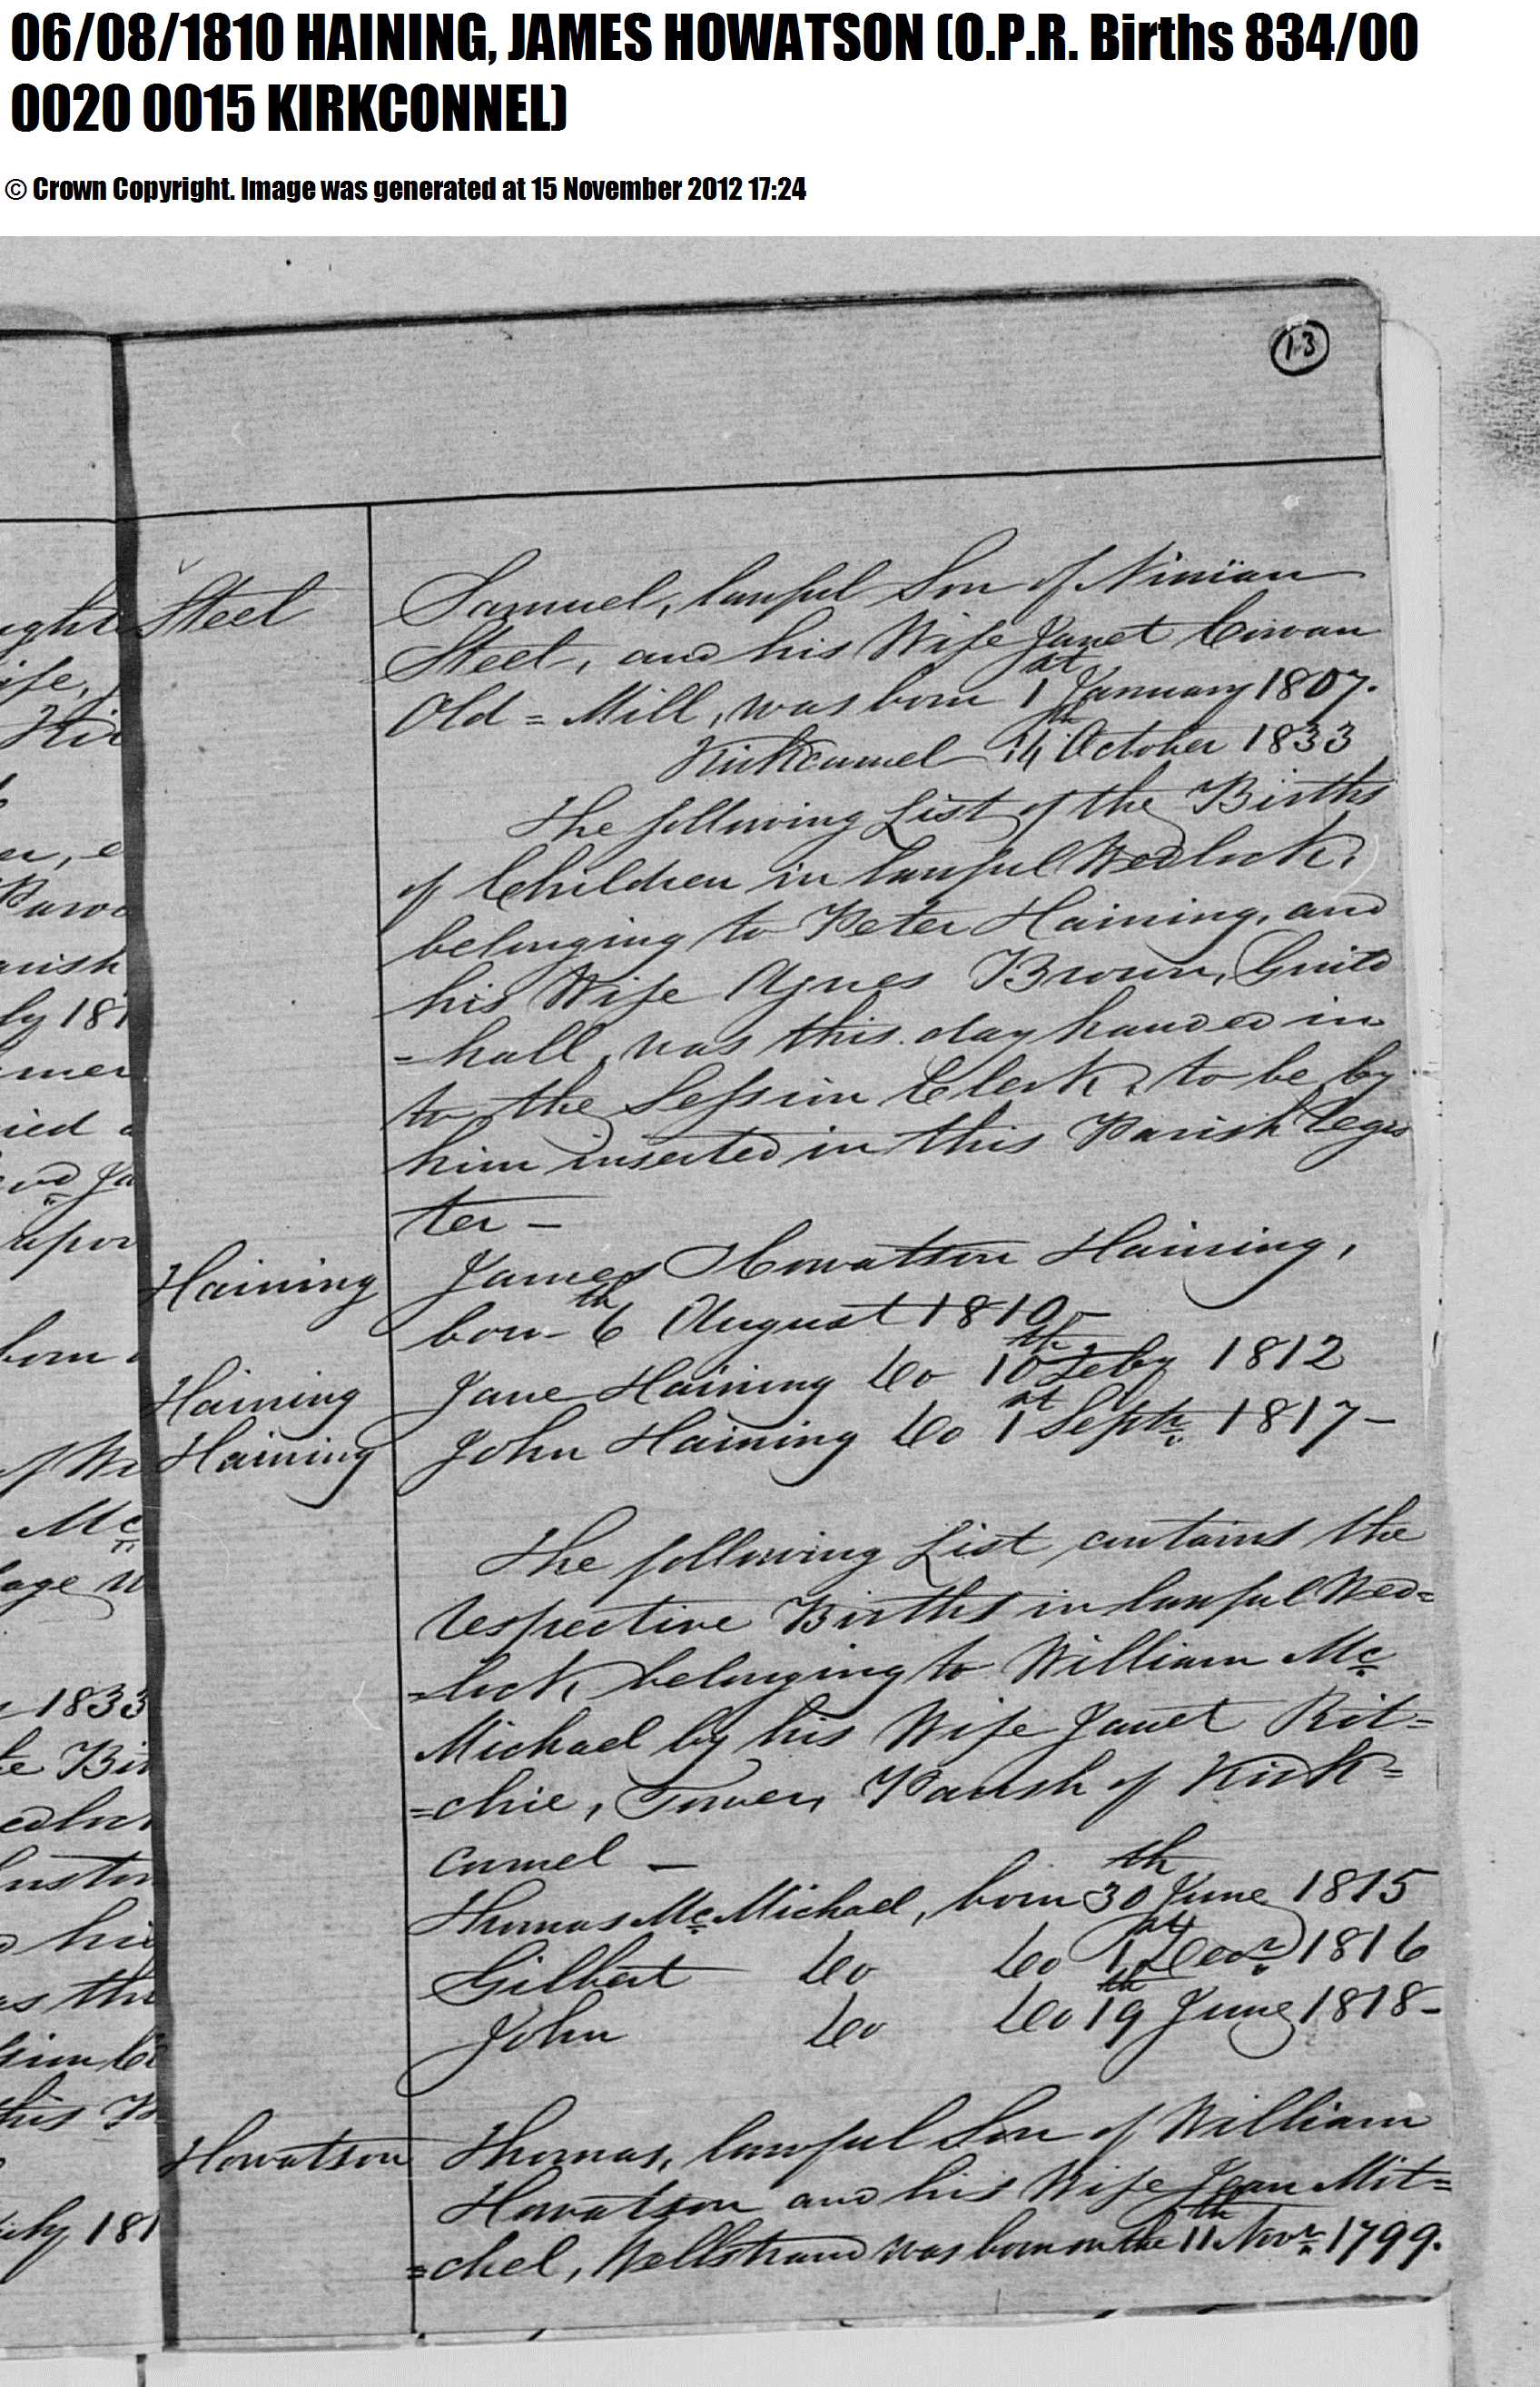 06/08/1810 HAINING, JAMES HOWATSON (O.P.R. Births 834/00
0020 0015 KIRKCONNEL)
© Crown Copyright. Image was generated at 15 November 2012 17:24
13
Steel
Samuel, lawful Son of Ninian
Steel, and his Wife Janet Cowan
Old = Mill, was born 1st January 1807.
Kirkconnel 14th October 1833
The following List of the Births
of Children in lawful Wedlock,
belonging to Peter Haining, and
his Wife Agnes Brown,
=hall, was this day handed in
to the Session Clerk, to be by
him inserted in this Parish Regis
ter —
Haining James Howatson Haining,
born 6th August 1810 —
Haining Jane Haining Do 10th Feby 1812
Haining John Haining Do 1st Septr. 1817 —
The following List contains the
respective Births in lawful Wed=
=lock, belonging to William Mc
Michael by his Wife Janet Rit=
=chie, Tower, Parish of Kirk=
connel —
Thomas Mc. Michael, born 30th June 1815
Gilbert Do Do 1st Decr. 1816
John Do Do 19th June 1818 —
Howatson Thomas, lawful Son of William
Howatson and his Wife Jean Mit=
=chel, Wellstrand was born on the 11th Novr. 1799.